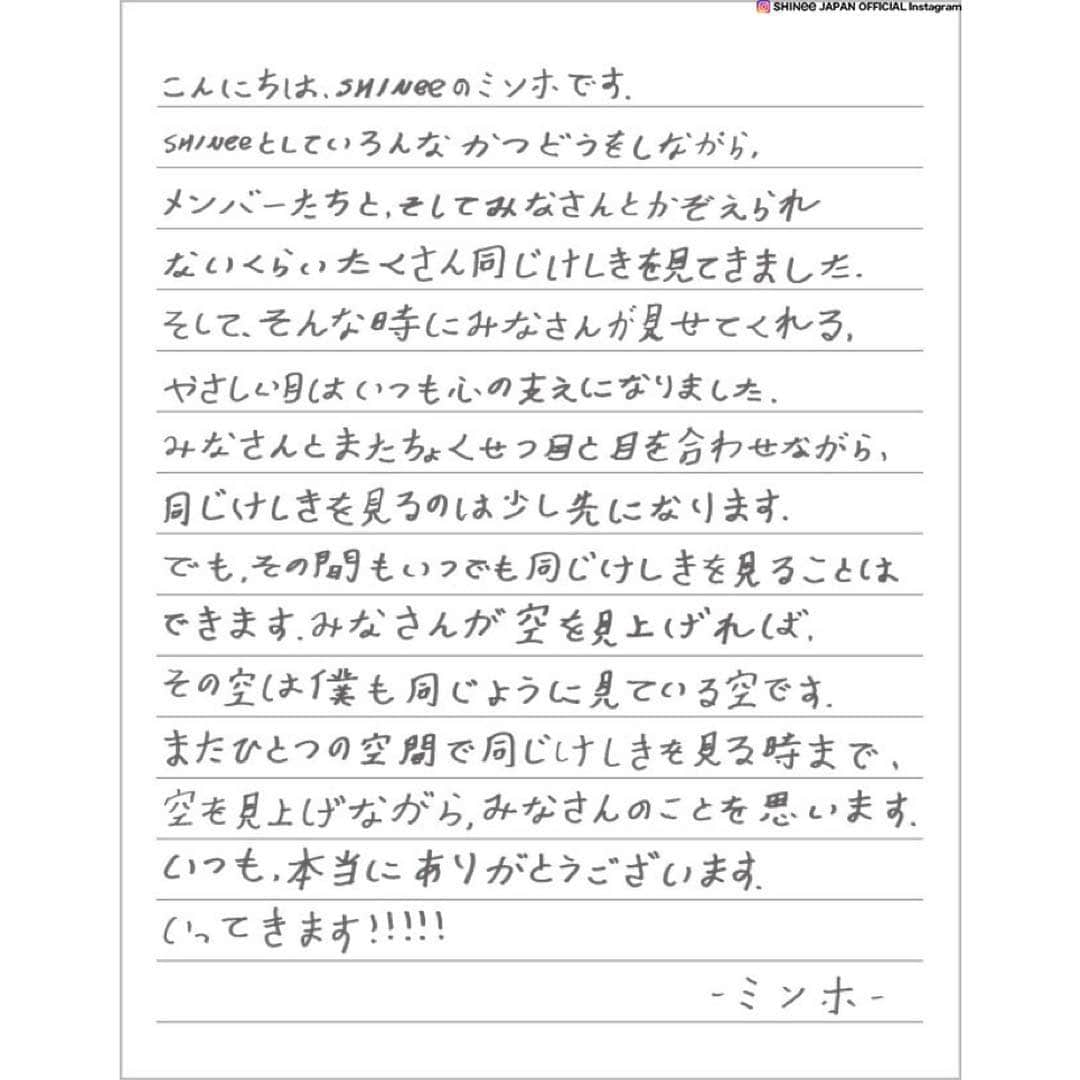 SHINee JAPAN OFFICIAL Instagram
こんにちは、SHINeeのミンホです.
SHINeeとしていろんな かつどうをしながら,
メンバーたちと,そしてみなさんとかぞえられ
ないくらいたくさん同じけしきを見てきました.
そして、そんな時にみなさんが見せてくれる,
やさしい目はいつも心の支えになりました.
みなさんとまたちょくせつ目と目を合わせながら、
同じけしきを見るのは少し先になります.
でも,その間もいつでも同じけしきを見ることは
できます.みなさんが空を見上げれば,
その空は僕も同じように見ている空です.
またひとつの空間で同じけしきを見る時まで、
空を見上げながら,みなさんのことを思います.
いつも,本当にありがとうございます.
いってきます!!!!!
-ミンホ-